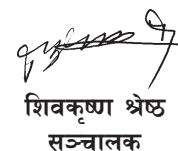 शिवकृष्ण श्रेष्ठ
सञ्चालक